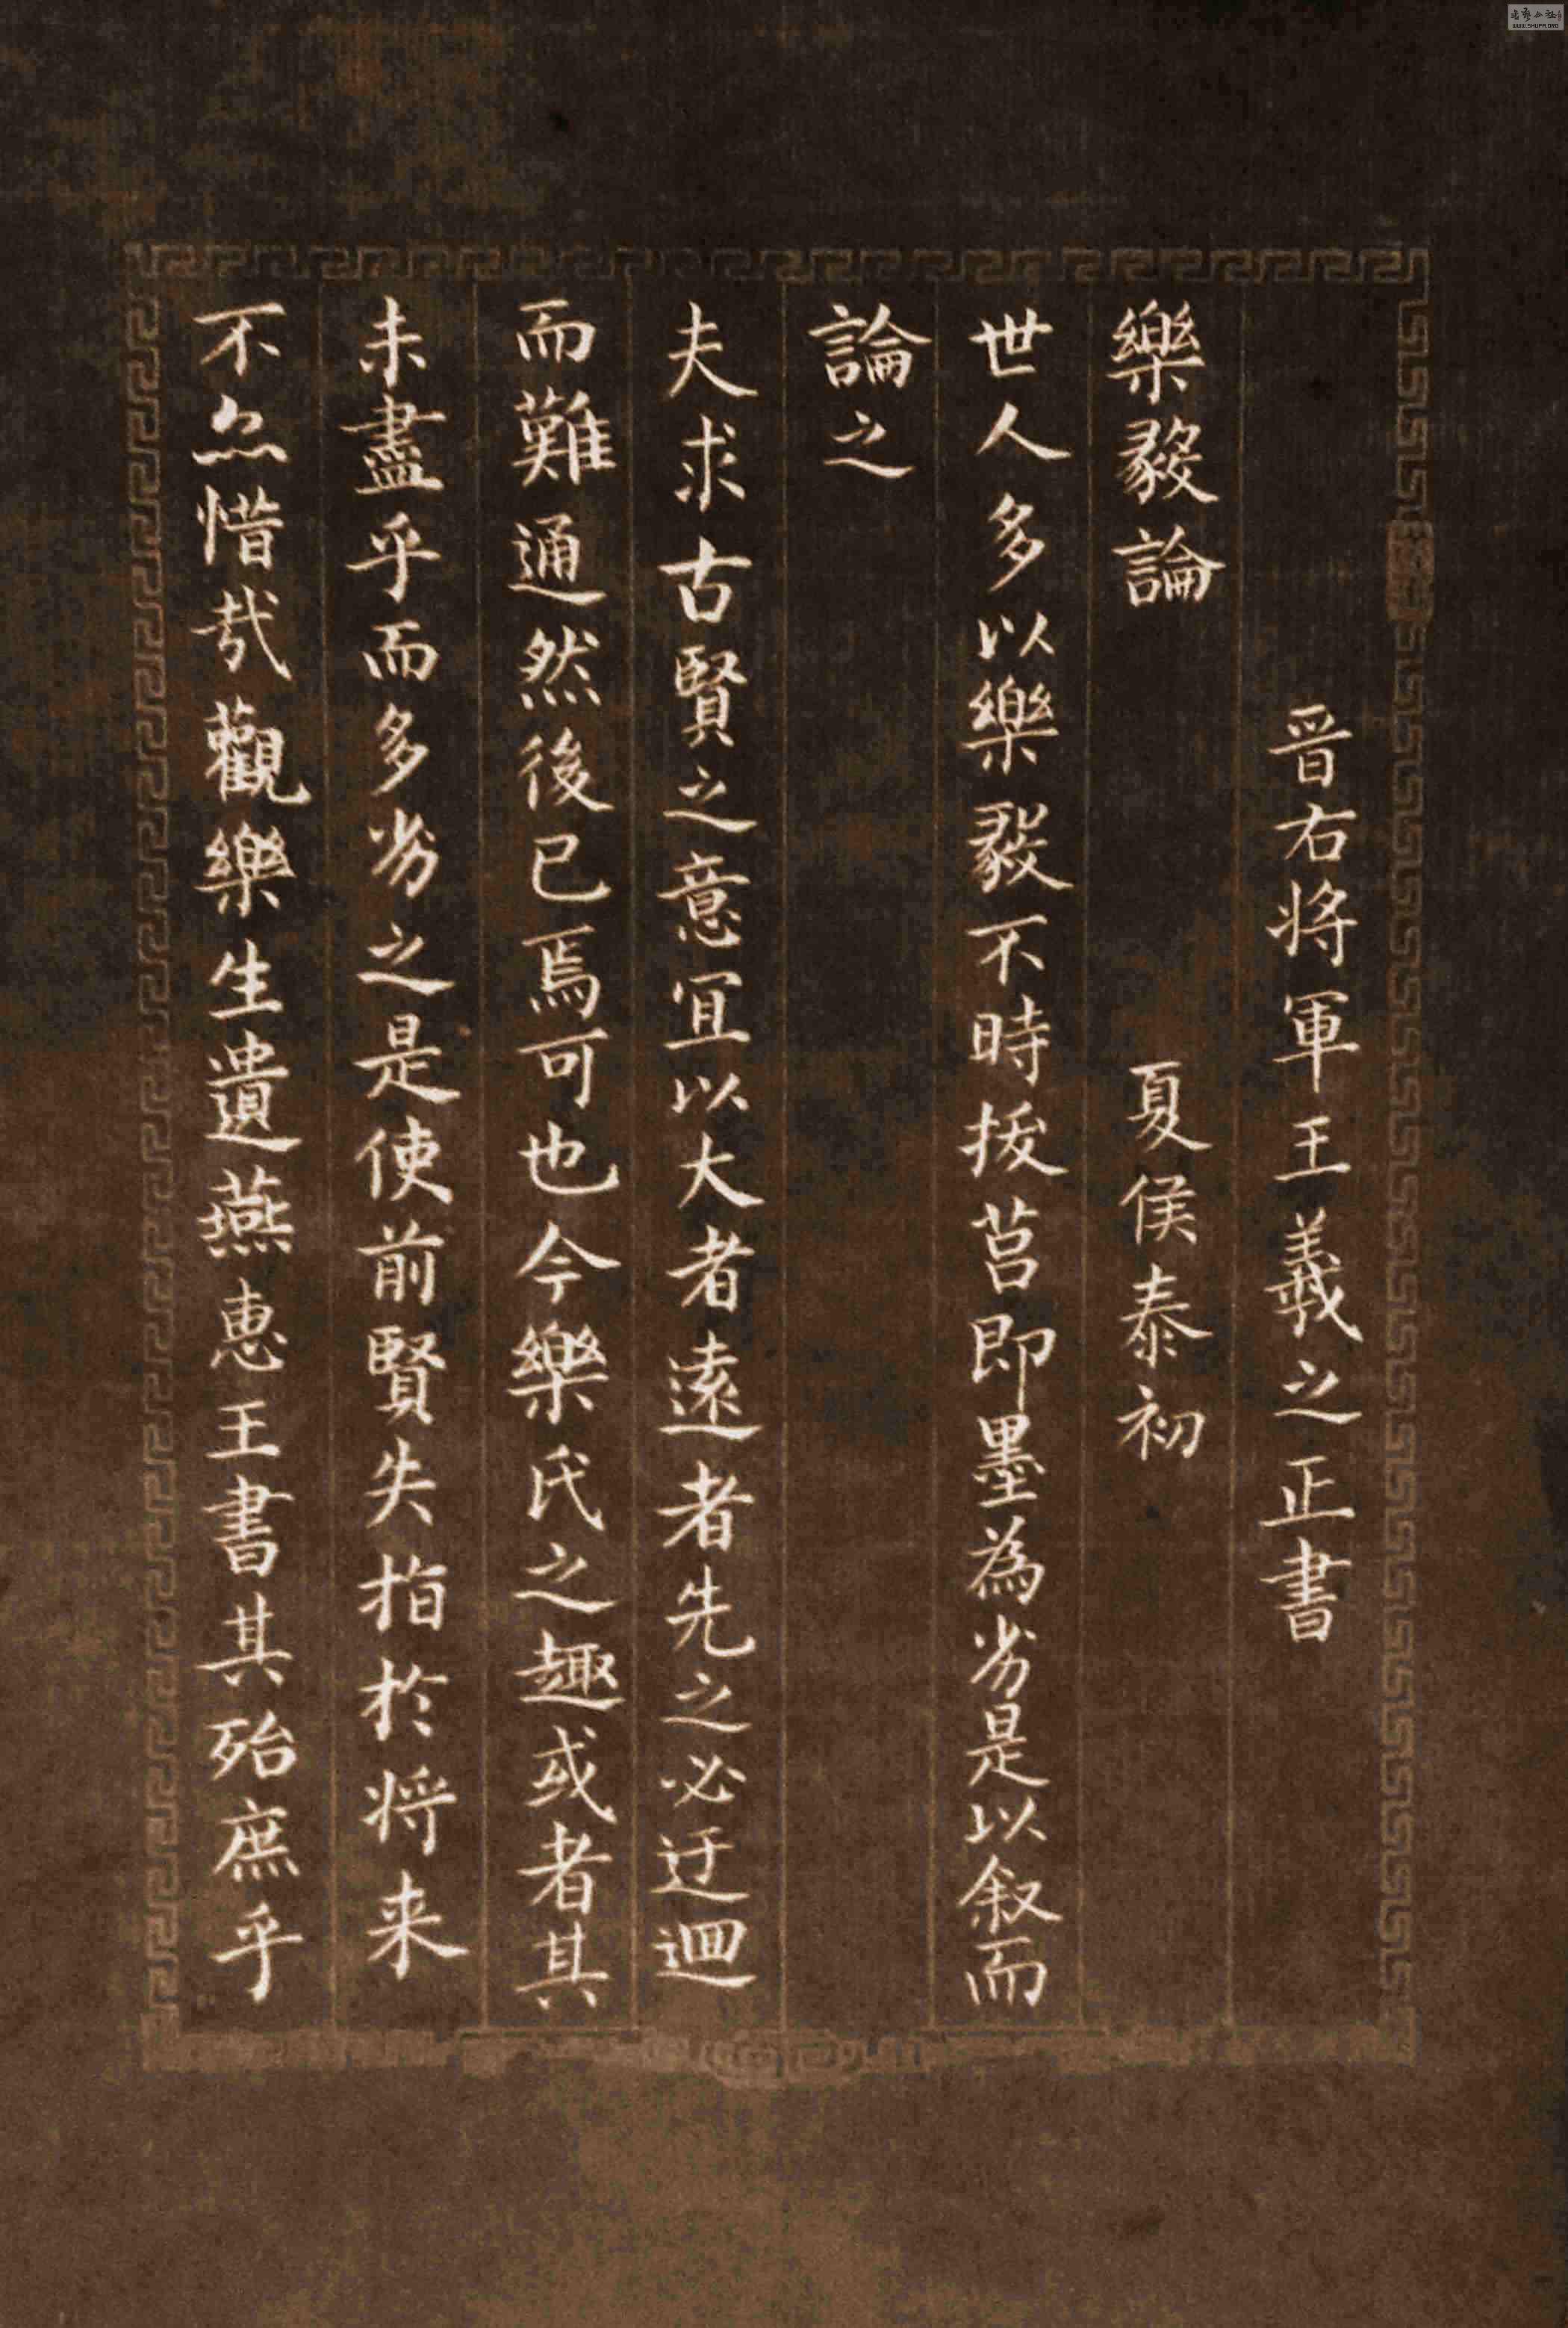 晉右將軍王羲之正書
樂毅論 夏侯泰初
世人多以樂毅不時拔莒即墨為劣是以叙而
論之
夫求古賢之意宜以大者遠者先之必迂迴
而難通然後已焉可也今樂氏之趣或者其
未盡乎而多劣之是使前賢失指於將来
不尒惜哉觀樂生遺燕惠王書其殆庶乎
WWW.SHUFA.ORG